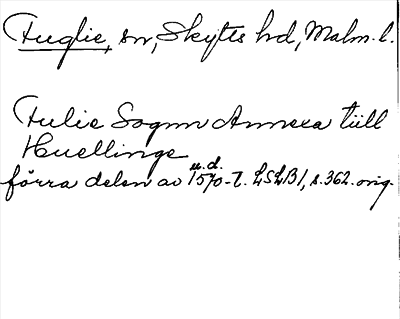 Fuglie, sn, Skytts hd, Malm. l.
Fulie Sognn Annexa till
Huellinge
u.d.
förra delen av 1570-t. LSLB1, s. 362. orig.